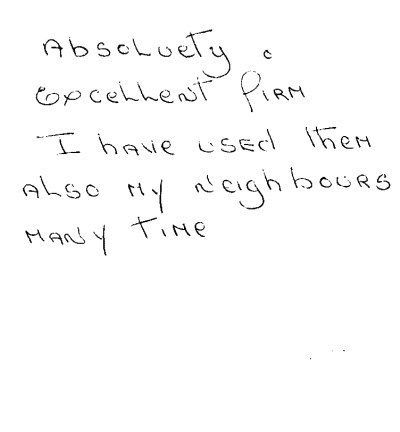 Absoluety
Excellent Firm
I have used them
Also my neighbours
many time